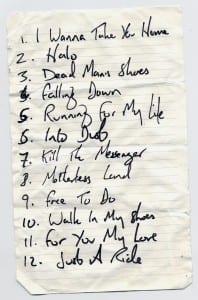 1. I Wanna Take You Home
2. Halo
3. Dead Mans Shoes
4. Falling Down
5. Running For My Life
6. Into Dust
7. Kill The Messenger
8. Motherless Land
9. Free To Do
10. Walk In My Shoes
11. For You My Love
12. Just A Ride